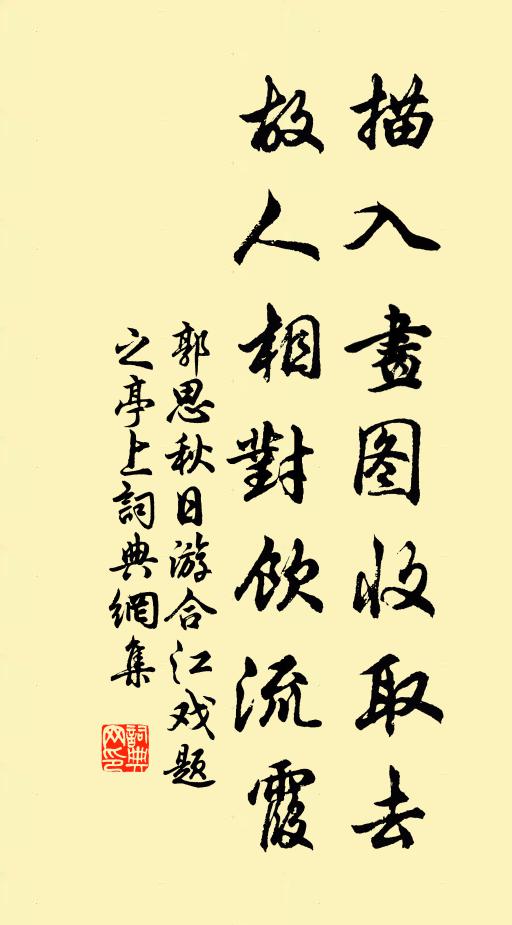 描入畫图收取去
故人相對飲流霞
郭思秋日游合江戏题
之亭上詞典網集
詞典網印